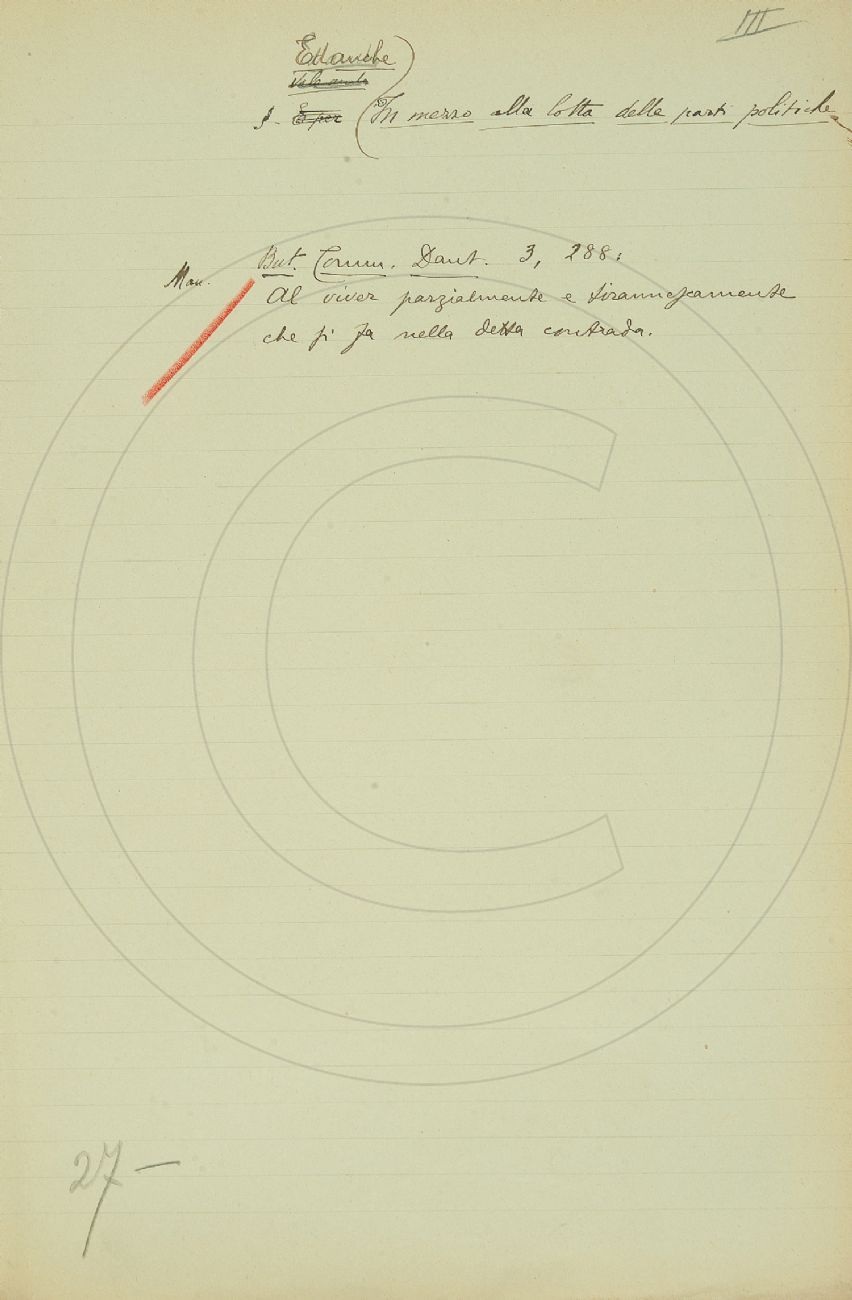 III
Ed anche
Vale anche
§. E per (In mezzo alla lotta delle parti politiche
Man.
But. Comm. Dant. 3, 288:
Al viver parzialmente e tirannescamente
che si fa nella detta contrada.
27 —